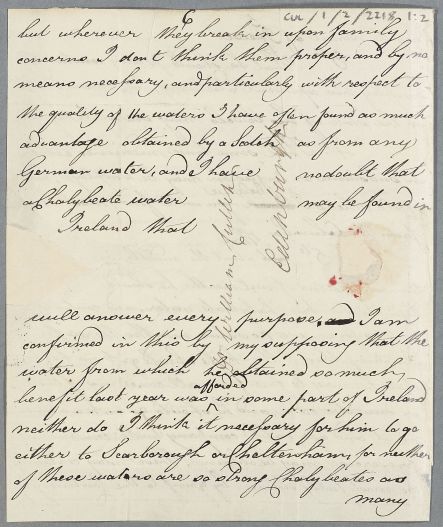 CUL/1/2/2218 1:2
but wherever they break in upon family
concerns I don't think them proper, and by no
means necessary, and particularly with respect to
the quality of the waters I have often found as much
advantage obtained by a Scotch as from any
German water, and I have no doubt that
a Chalybeate water may be found in
Ireland that
will answer every purpose, and I am
confirmed in this by my supposing that the
water from which he obtained so much
benefit last year was afforded in some part of Ireland
neither do I think it necessary for him to go
either to Scarborough or Cheltenham, for neither
of these waters are so strong Chalybeates as
many
Dr William Cullen
Edinburgh